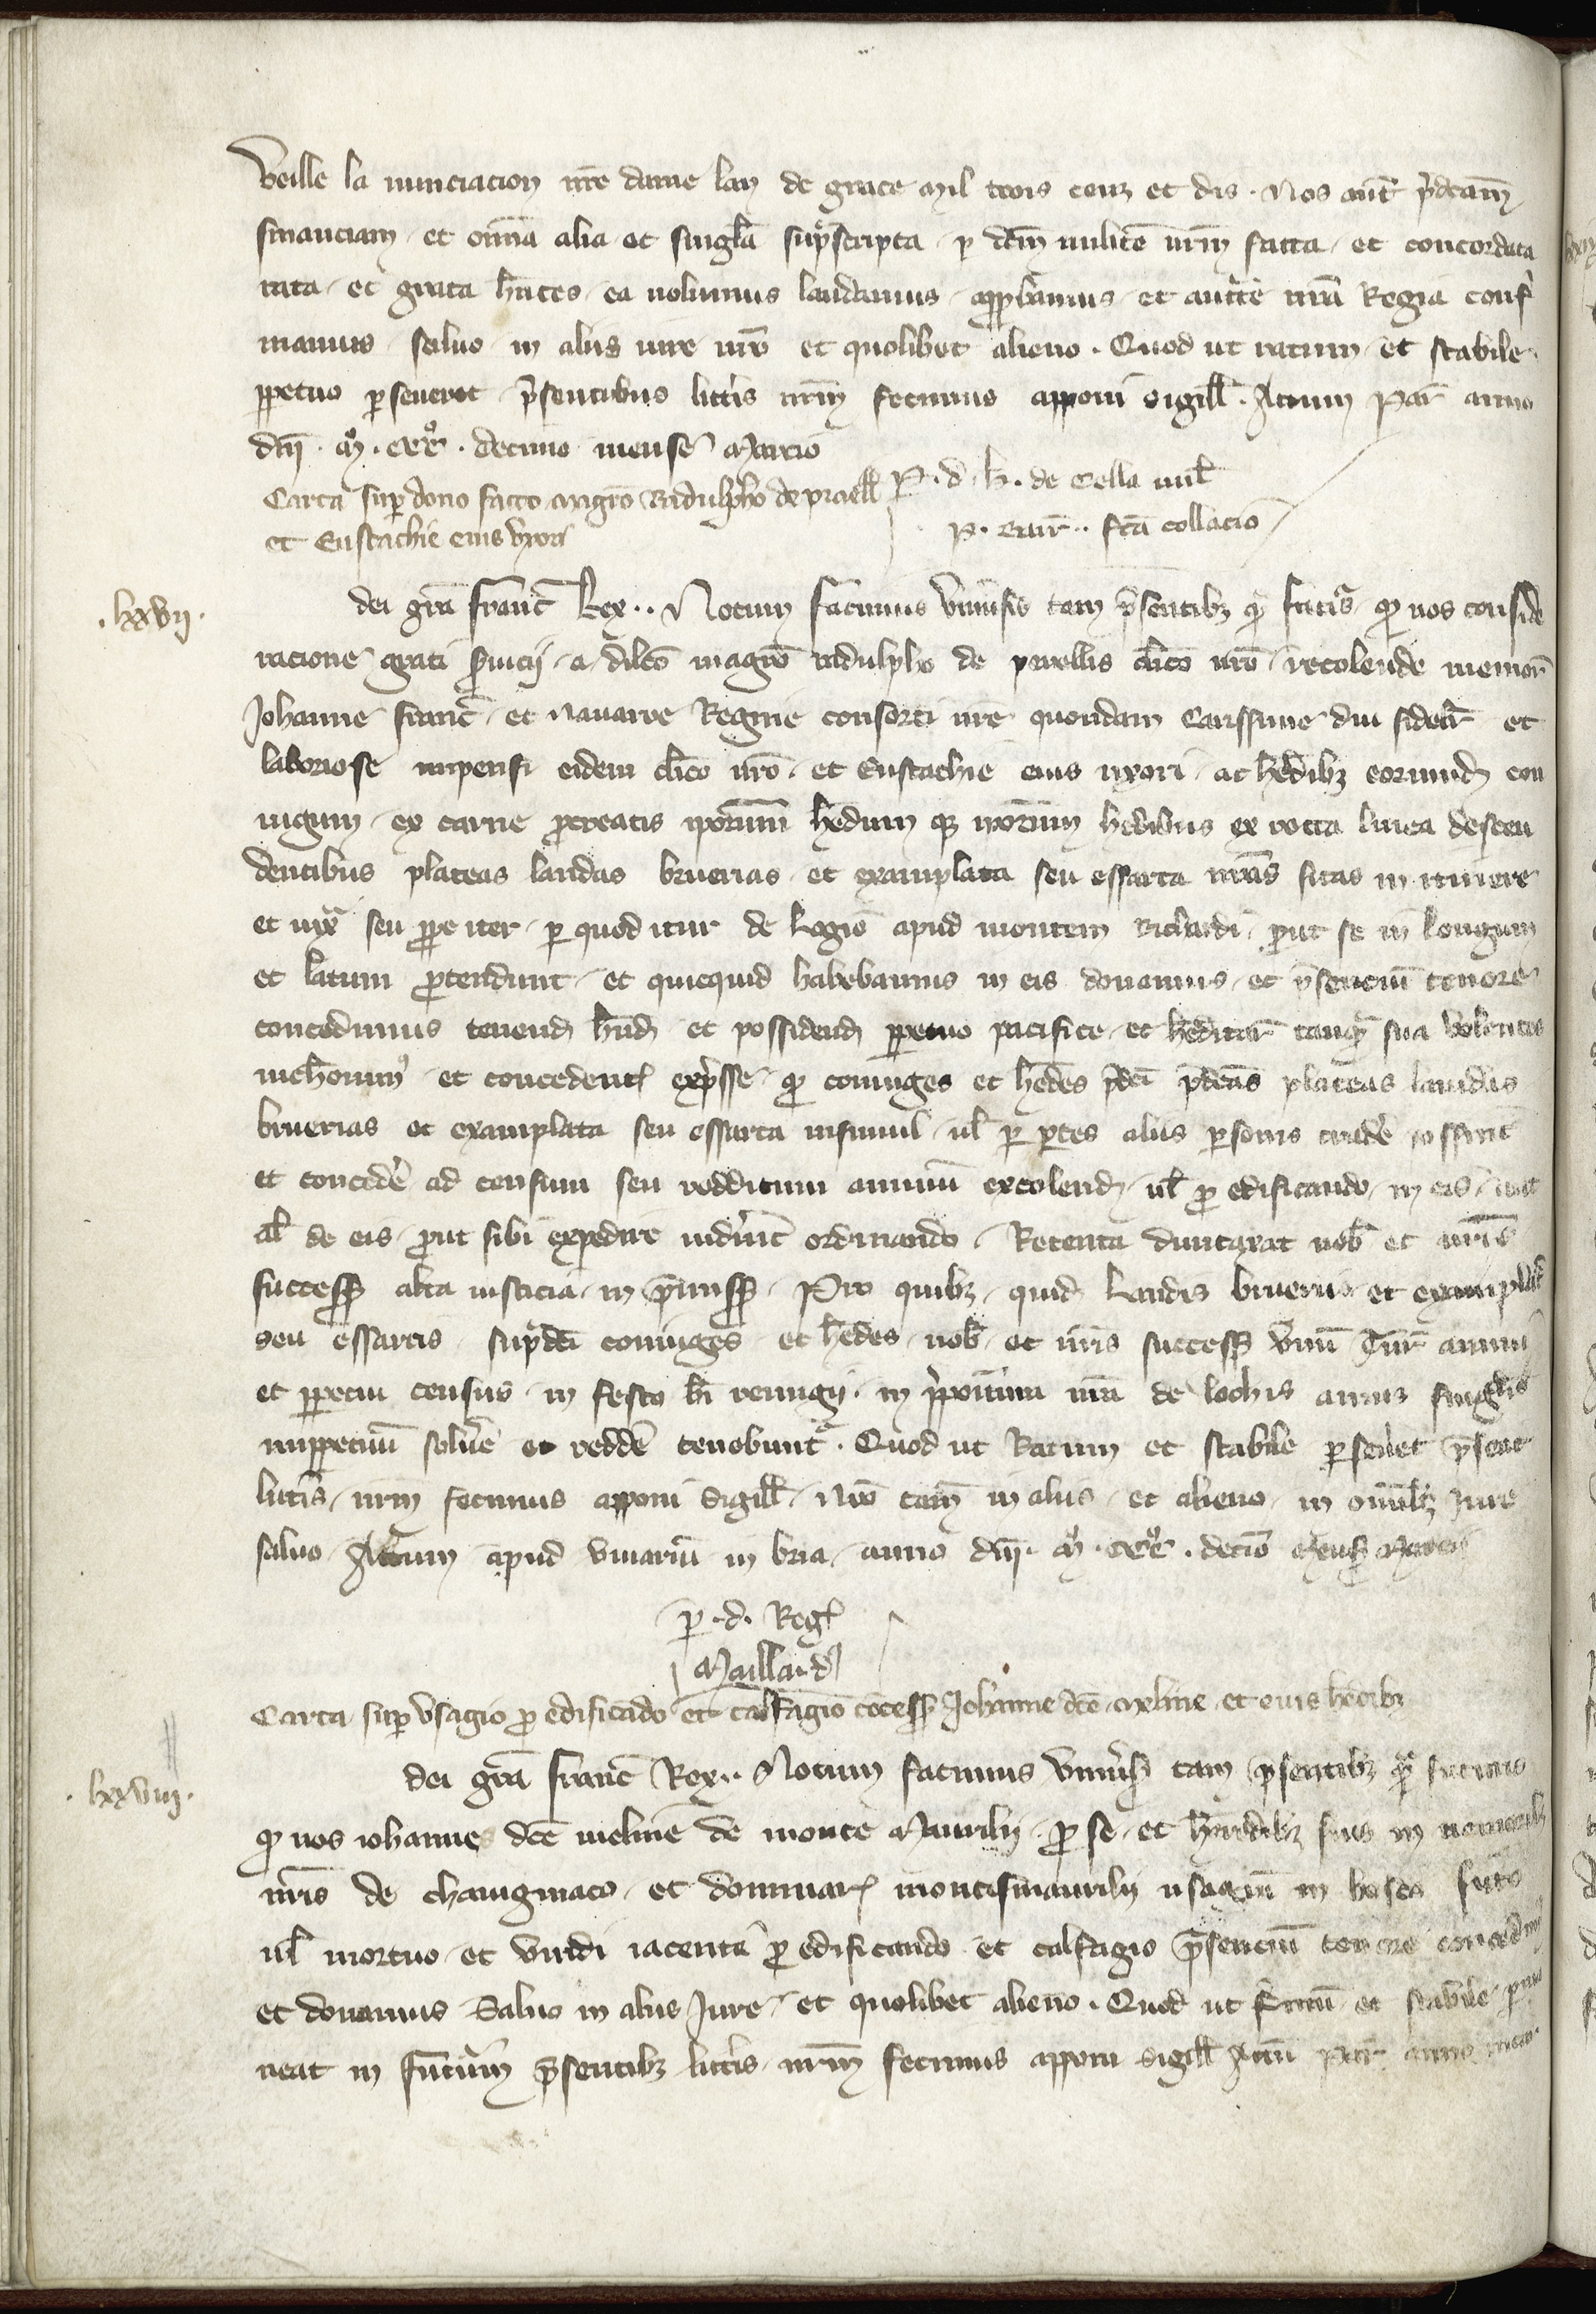 Veille la nunciacion nre dame lan de grace mil trois cenz et dis. Nos aut p̄dcam
financiam et om̄ia alia et singla sup̄scripta p dcm militē nrm facta et concordata
rata et grata hn̄tes ea volumus laudamus approbamus et aucte nrā Regia confir
mamus salvo in aliis iure nr̄o et quolibet alieno. Quod ut ratum et stabile
ppetuo pseueret p̄sentibus litt̄is nrm fecimus apponi sigill. Actum Par anno
dnī. M.ccc. decimo mense Marcio
P. d. h. de Cella mil
Carta sup dono facto magro Radulpho de praell
et Eustachie eius uxori
p. facta collacio
.lxxvii.
dei grā franc Rex.. Notum facimus univsis tam p̄sentibz q̄ futis q nos conside
racione grati svicii a dilco magro radulpho de praellis clico nro recolende memor
Johanne franc et Navarre Regine consorti nre quondam Carissime diu fidelr et
laboriose impensi eidem clico nro et Eustachie eius uxori ac hedibz eorumd con
iugum ex carne procreatis ipor̄um hedum qz ipor̄um hedibus ex recta linea descen
dentibus plateas landas bruerias et examplata seu essarta nrās sitas in itinere
et iuxta seu prope iter p quod itur de Logio apud montem Richardi prout se in longum
et latum protendunt et quicquid habebamus in eis donamus et p̄senciū tenore
concedimus tenend hnd et possidend ppetuo pacifice et hereditar tanq sua volentes
et concedent exp̄sse q coniuges et hedes p̄dci p̄dcās plateas landas
bruerias et examplata seu essarta insimul ul p ptes aliis psonis tradē possint
et concedē ad censum seu redditum annuū excolend ul pro edificando in eis aut
al de eis prout sibi expedire vidint ordinando. Retenta duntaxat nob et nris
success alta iusticia in p̄miss. Pro quibz quid landis brueriis et examplat
seu essartis sup̄dci coniuges et hedes nob et nris success unū Tur annui
et ppetui census in festo bi remigii in p̄positura nrā de lochis annis singlis
imppetuū solvē et reddē tenebunt. Quod ut Ratum et stabile pseveret p̄sent
litt̄is nrm fecimus apponi sigill. Nro tam̄ in aliis et alieno in om̄ibz Iure
salvo Actum apud vivariū in bria anno dnī. M.ccc. decio mense Marcii
p. d. Reg
Maillard
Carta sup usagio pro edificādo et calfagio cōcess Johanne dce meline et eius hedibz
.lxxviii.
dei grā franc Rex.. Notum facimus univsis tam p̄sentibz q̄ futuris
q nos iohanne dce meline de monte Maurilii p se et hedibz suis in nemoribz
nris de chavigniaco et dominar montismaurilii usagiū in bosco
ul mortuo et viridi iacente pro edificando et calfagio p̄senciū tenore concedimus
et donamus Salvo in aliis Iure et quolibet alieno. Quod ut firmū et stabile pma
neat in futurum p̄sentibz litt̄is nrm fecimus apponi sigill Actū par anno